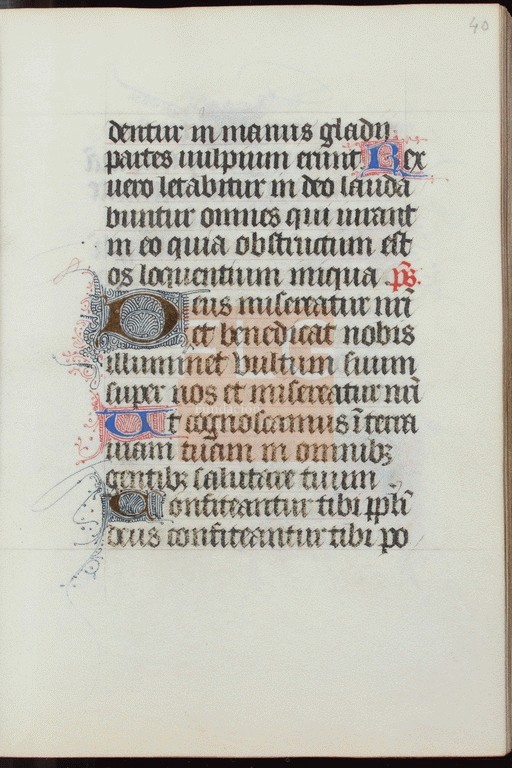 40
dentur in manus gladii
partes uulpium erunt Rex
uero letabitur in deo lauda
buntur omnes qui iurant
in eo quia obstructum est
os loquentium iniqua p̄s.
Deus misereatur nr̄i
et benedicat nobis
illuminet vultum suum
super nos et misereatur nr̄i
Ut cognoscamus ī terra
uiam tuam in omnibꝫ
gentibꝫ salutare tuum
Confiteantur tibi ppl̄i
deus confiteantur tibi po